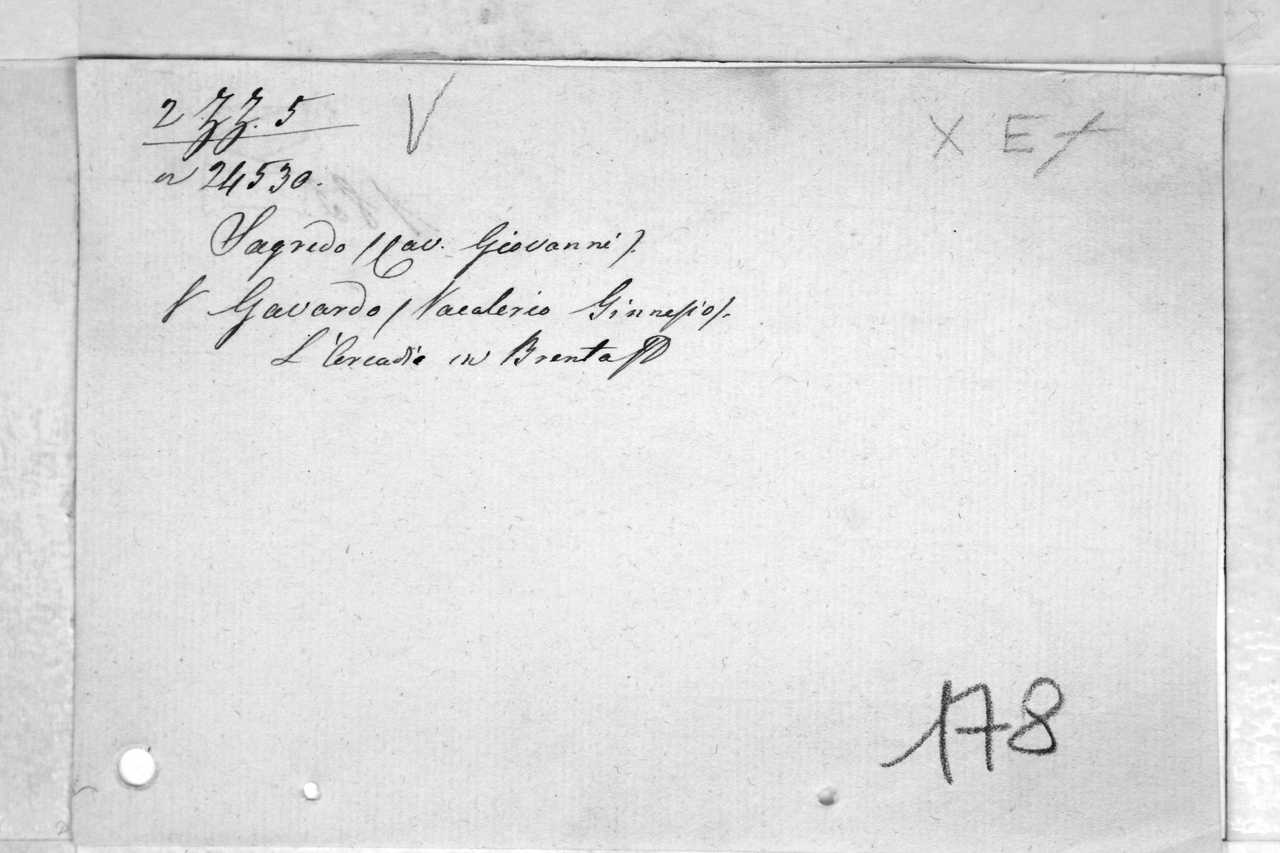 2 ZZ. 5 V
X E
n 24530.
Sagredo (Cav. Giovanni).
V Gavardo (Vacalerio Ginnesio).
L' in Brenta
178